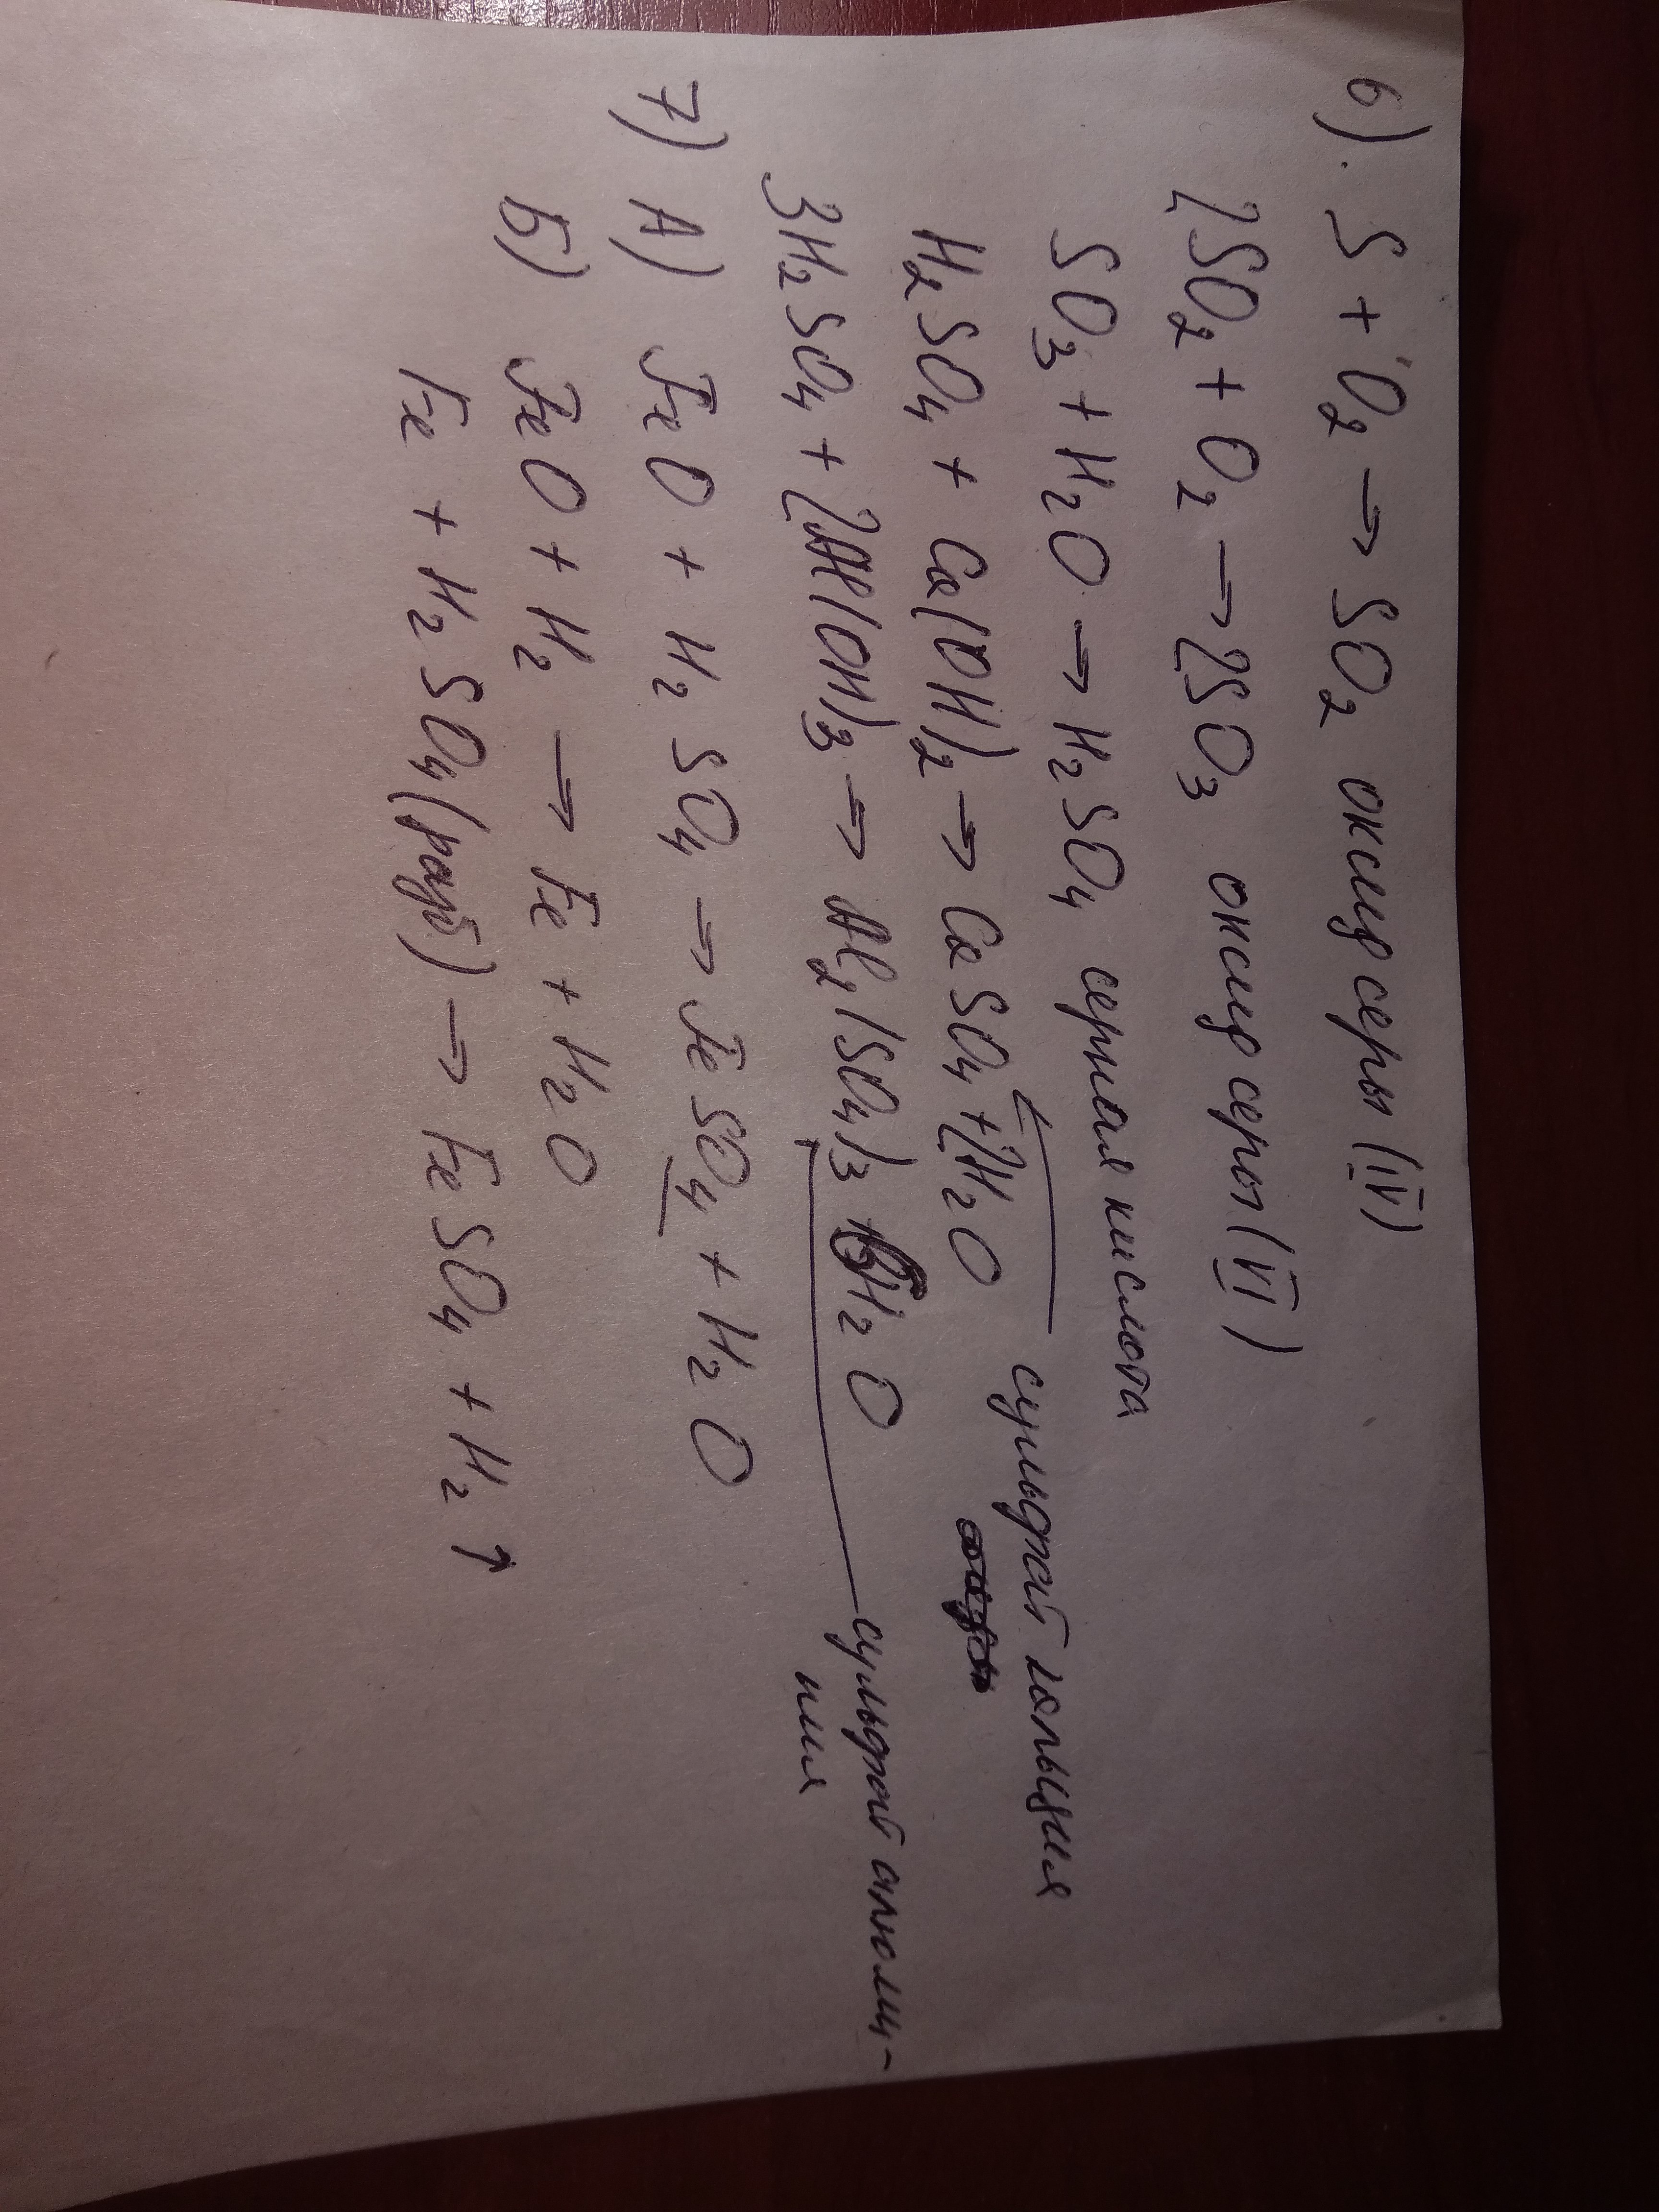 6). S + O₂ → SO₂ оксид серы (IV)
2SO₂ + O₂ → 2SO₃ оксид серы (VI)
SO₃ + H₂O → H₂SO₄ серная кислота
H₂SO₄ + Ca(OH)₂ → CaSO₄ + 2H₂O сульфат кальция
3H₂SO₄ + 2Al(OH)₃ → Al₂(SO₄)₃ + 6H₂O сульфат алюми-
ния
7) А) FeO + H₂SO₄ → FeSO₄ + H₂O
Б) FeO + H₂ → Fe + H₂O
Fe + H₂SO₄(разб) → FeSO₄ + H₂↑